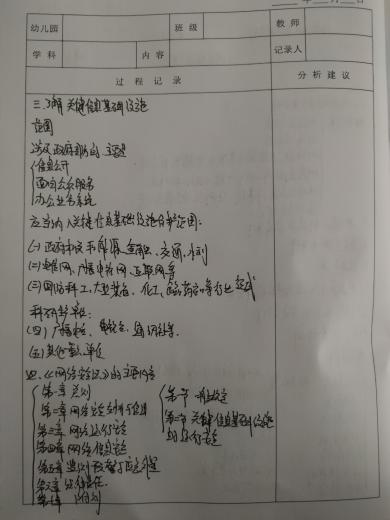 年 月 日
幼儿园 班级 教师
学科 内容 记录人
过程记录 分析建议
三、了解关键信息基础设施
范围
涉及政府部门的主要
信息公开
面向公众服务
办公业务系统
应当纳入关键信息基础设施保护范围：
(一)政府机关和能源、金融、交通、水利
(二)电信网、广播电视网、互联网等
(三)国防科工、大型装备、化工、食品药品等行业
科研生产单位；
(四)广播电台、电视台、通讯社等
(五)其他重点单位
四、《网络安全法》的主要内容
第一章 总则
第二章 网络安全支持与促进
第三章 网络运行安全
第一节 一般规定
第二节 关键信息基础设施
的运行安全
第四章 网络信息安全
第五章 监测预警与应急处置
第六章 法律责任
第七章 附则